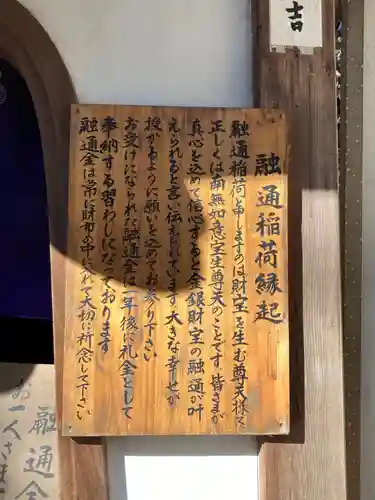 吉
融通稲荷縁起
融通稲荷と申しますのは財宝を生む尊天様で
正しくは南無如意宝生尊天のことです。皆さまが
真心を込めて信心すると金銀財宝の融通が叶
えられると言い伝えられています。大きな幸せが
授かるように願いを込めてお参り下さい
お受けになられた融通金は一年後に礼金として
奉納する習わしになっております
融通金は常に財布の中に入れて大切に祈念して下さい
融通金
お一人さま